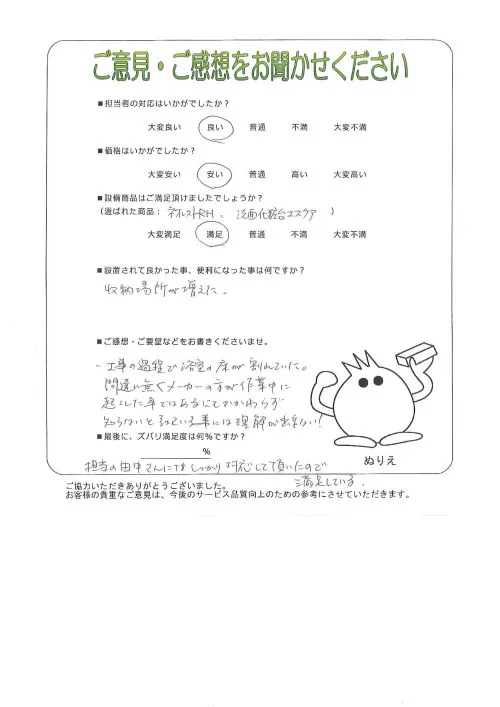 ご意見・ご感想をお聞かせください
■担当者の対応はいかがでしたか？
大変良い 良い 普通 不満 大変不満
■価格はいかがでしたか？
大変安い 安い 普通 高い 大変高い
■設備商品はご満足頂けましたでしょうか？
（選ばれた商品： ネオレストRH、洗面化粧台エスクア ）
大変満足 満足 普通 不満 大変不満
■設置されて良かった事、便利になった事は何ですか？
収納場所が増えた。
■ご感想・ご要望などをお書きくださいませ。
工事の過程で浴室の床が割れていた。
間違い無くメーカーの方が作業中に
起こした事ではあるにもかかわらず
知らないと言っている事には理解が出来ない！
■最後に、ズバリ満足度は何%ですか？
%
担当の田中さんにはしっかり対応して頂いたので
満足しています。
ぬりえ
ご協力いただきありがとうございました。
お客様の貴重なご意見は、今後のサービス品質向上のための参考にさせていただきます。